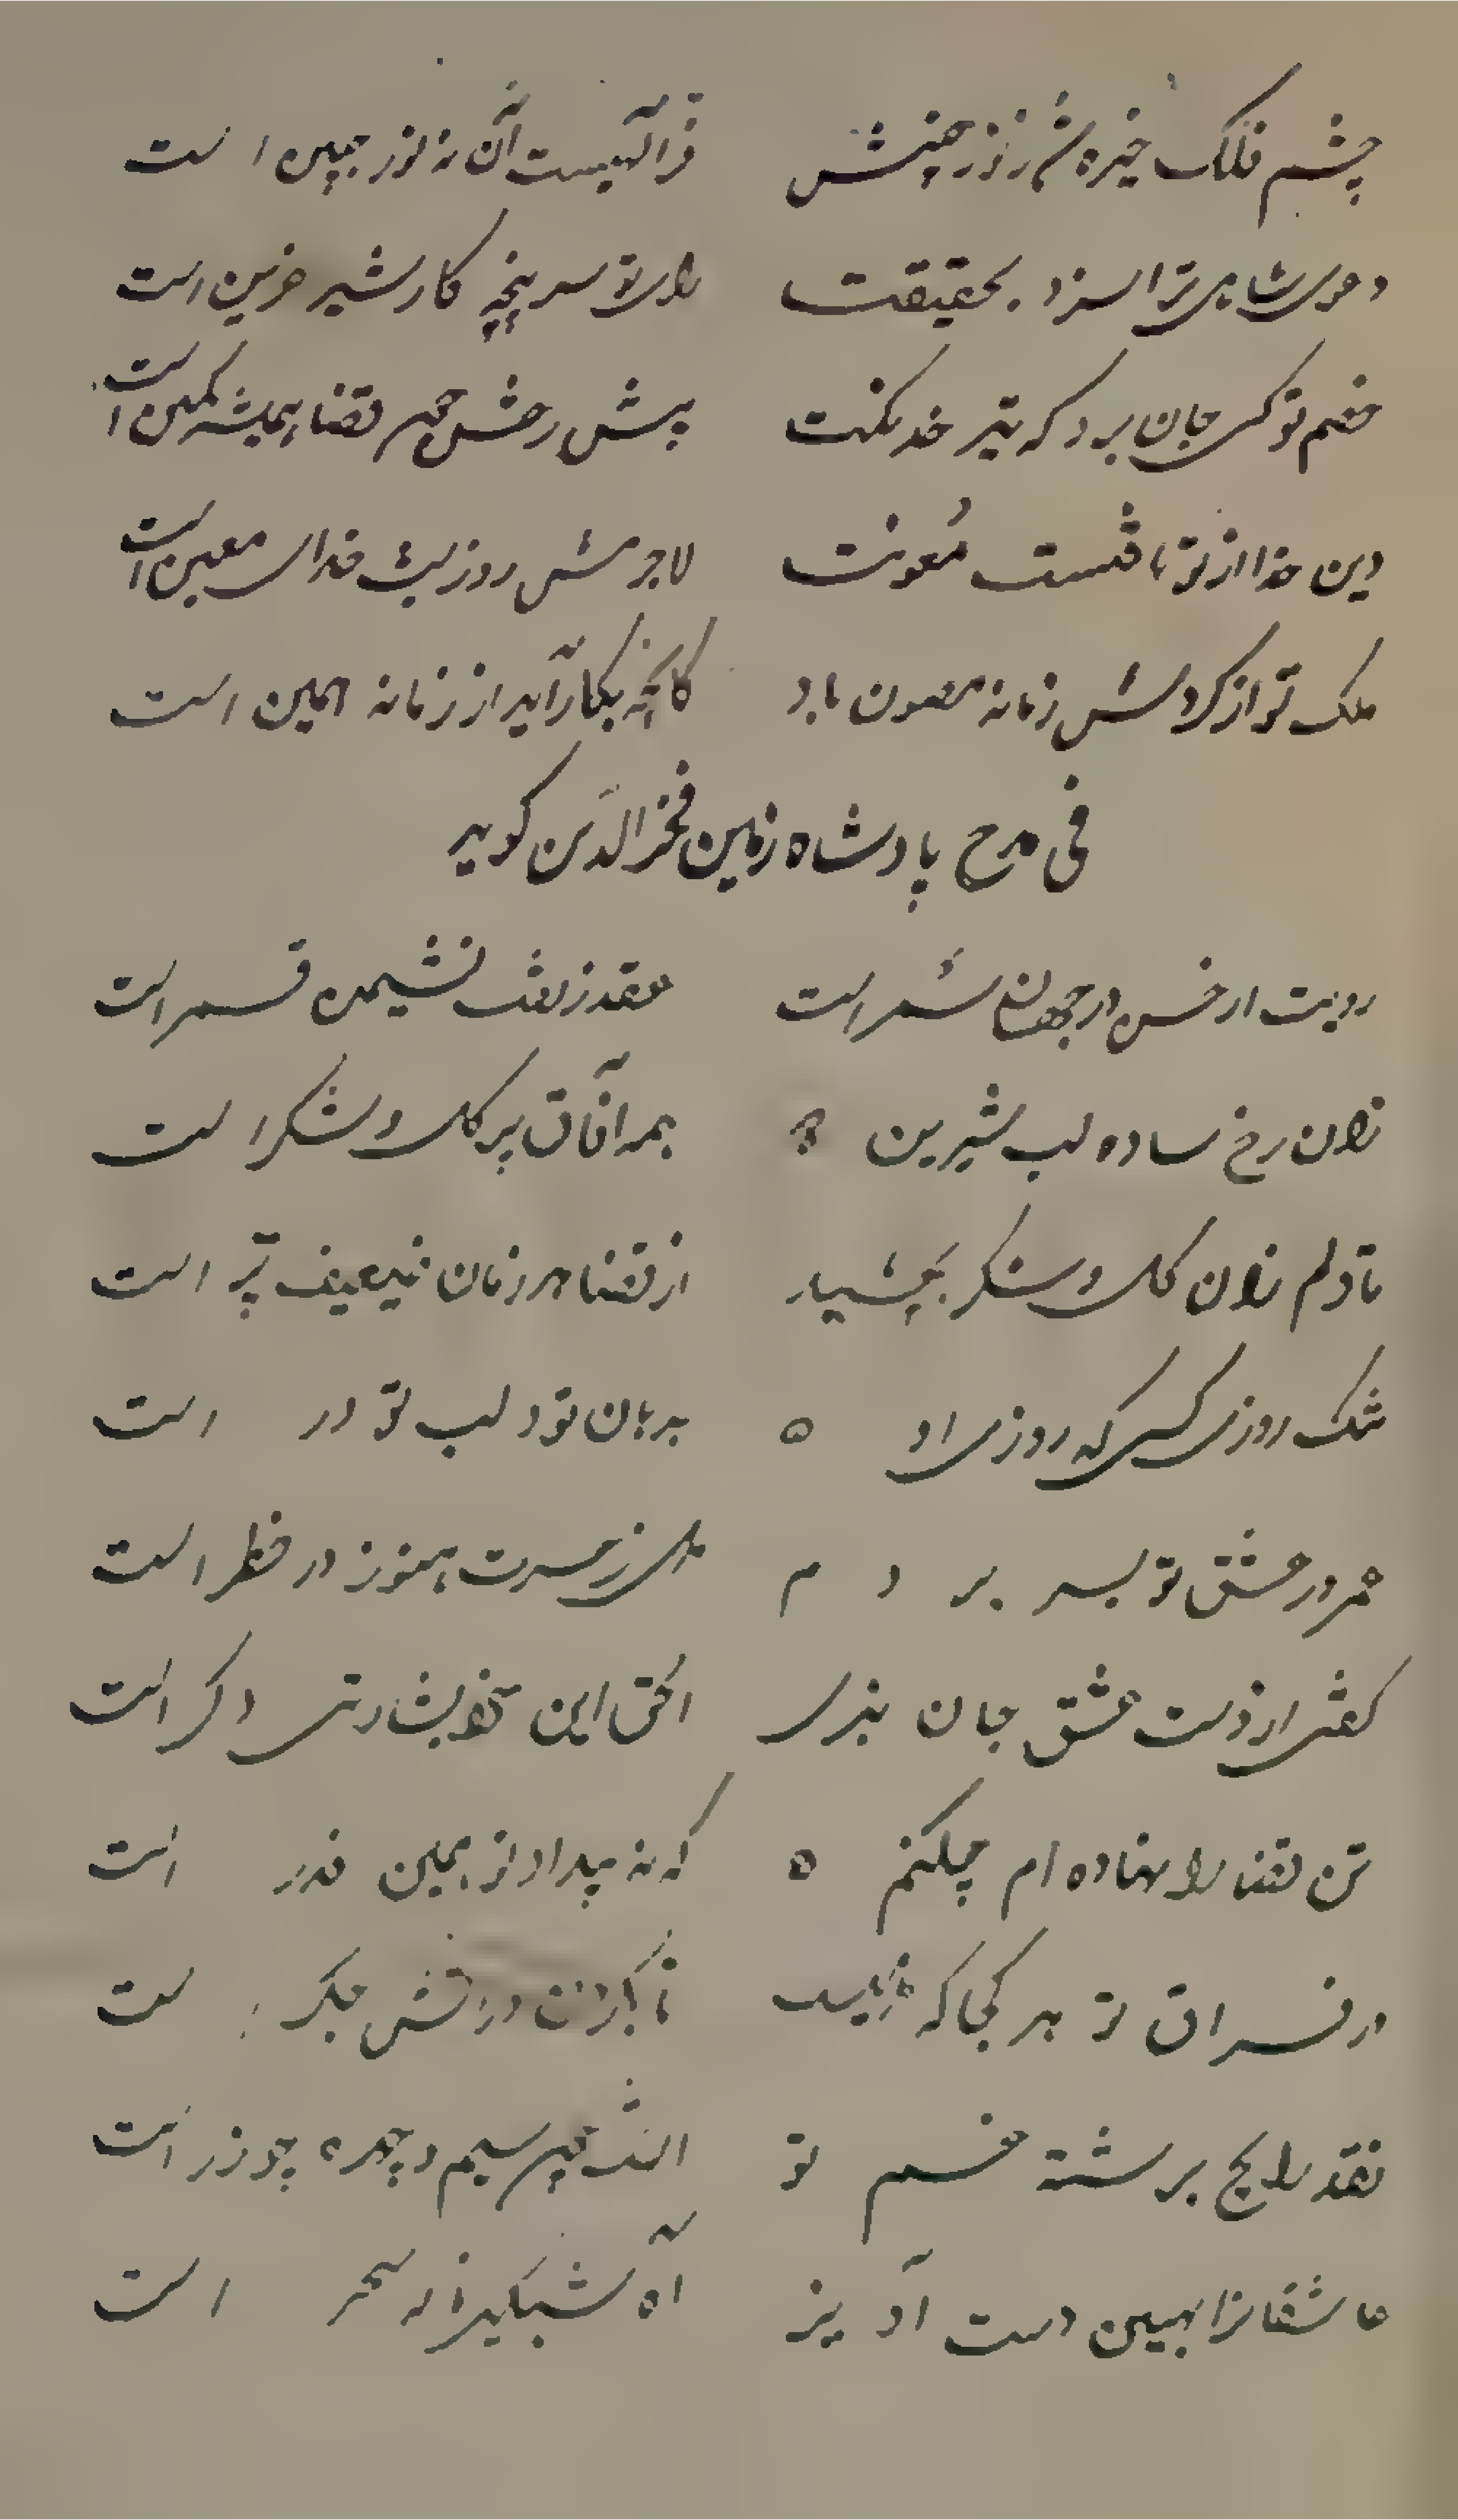 چشم فلک خیره شد ز نور جبینش فر الهیست آن نه نور جبین است
دعوی شاهی ترا سزد بحقیقت رای تو سر پنجه کار شیر عرین است
خصم تو کی جان برد که تیر خدنگت پیش رخش چون قضا همیشه کمین است
دین خدا از تو یافتست معونت لاجرمش روز و شب خدای معین است
ملک تو از گردش زمانه مصون باد کانچه بکار آید از زمانه همین است
فی مدح پادشاه زمین فخرالدین گوید
رویت از حسن در جهان سمر است عقد زلفت نشیمن قمر است
زان رخ ساده و لب شیرین همه آفاق پر گل و شکر است
تا دلم زان گل و شکر بچشید از قضا هر زمان ضعیف تر است
تنگ روزی کسی که روزی او بدهان تو و لب تو در است
عمر در عشق تو بسر بردم دل ز عمرت هنوز در خطر است
گفتی از دست عشق جان نبری الحق این خود بشارتی دگر است
تن قضا را نهاده ام چکنم که نه بیداد تو همین قدر است
در فراق تو هر کجا که جگر است
نقد رایج برشته غم تو اشک چون سیم و چهره چو زر است
عاشقانرا بهین دست آویز آه شبگیر و ناله سحر است